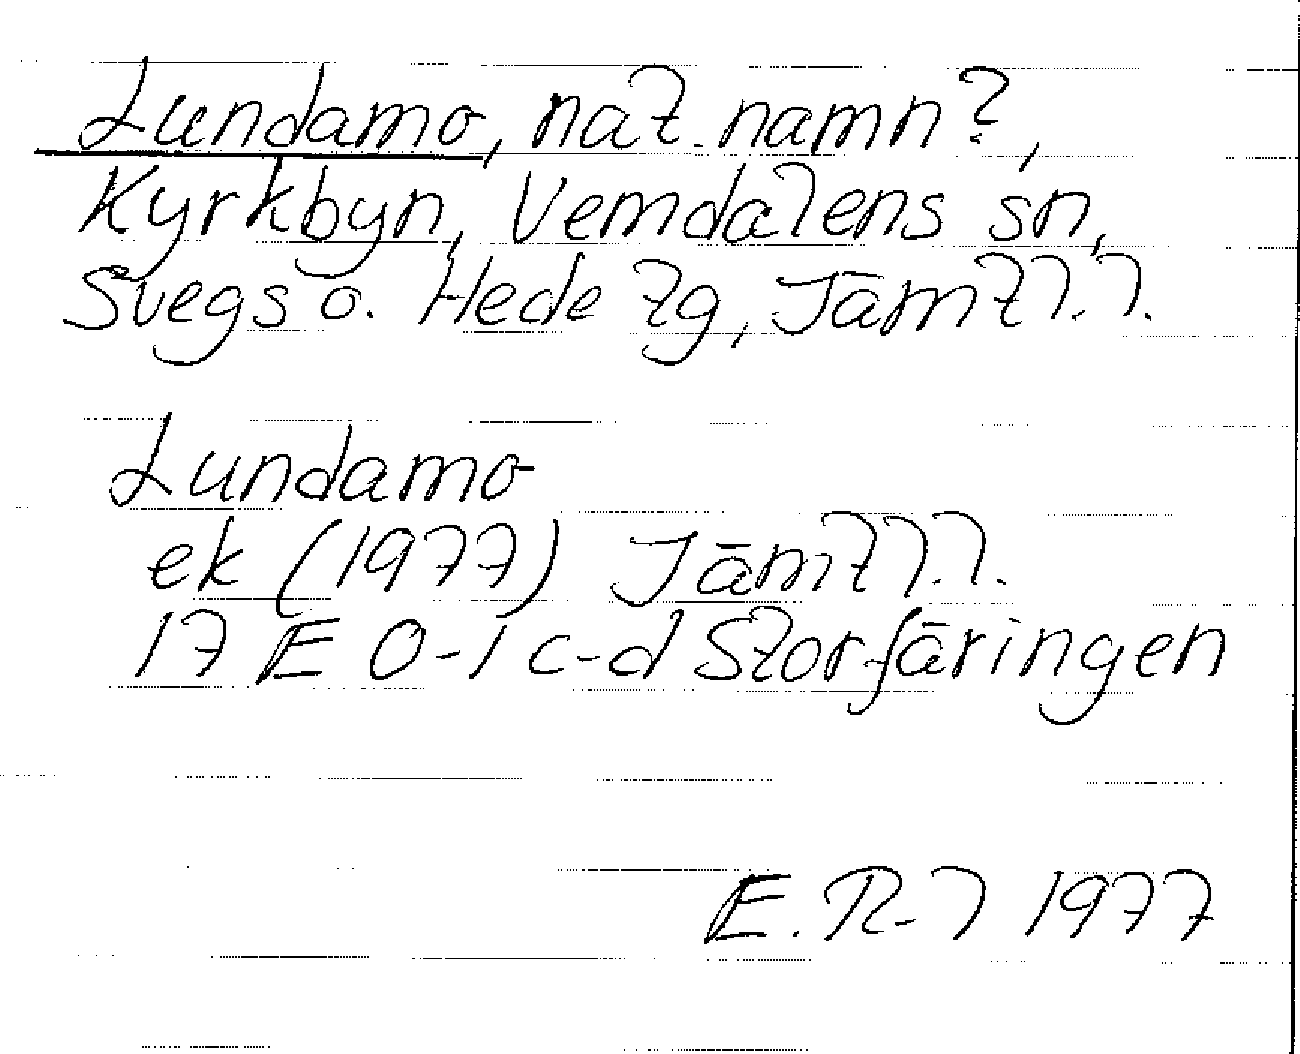 Lundamo, nat. namn?,
Kyrkbyn, Vemdalens sn,
Svegs o. Hede tg, Jämtl.l.
Lundamo
ek (1977) Jämtl.l.
17 E 0-1 c-d Storfäringen
E. R-l 1977